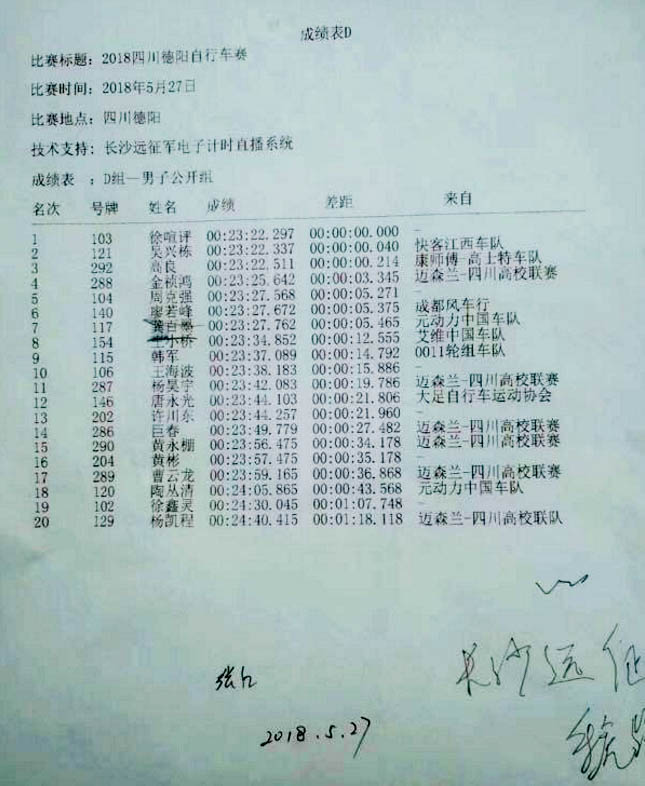 成绩表D
比赛标题：2018四川德阳自行车赛
比赛时间：2018年5月27日
比赛地点：四川德阳
技术支持：长沙远征军电子计时直播系统
成绩表 ：D组—男子公开组
名次 号牌 姓名 成绩 差距 来自
1 103 徐喧评 00:23:22.297 00:00:00.000 -
2 121 吴兴栋 00:23:22.337 00:00:00.040 快客江西车队
3 292 高良 00:23:22.511 00:00:00.214 康师傅-高士特车队
4 288 金桢鸿 00:23:25.642 00:00:03.345 迈森兰-四川高校联赛
5 104 周克强 00:23:27.568 00:00:05.271 -
6 140 廖若峰 00:23:27.672 00:00:05.375 成都风车行
7 117 00:23:27.762 00:00:05.465 元动力中国车队
8 154 小桥 00:23:34.852 00:00:12.555 艾维中国车队
9 115 韩军 00:23:37.089 00:00:14.792 0011轮组车队
10 106 王海波 00:23:38.183 00:00:15.886 -
11 287 杨昊宇 00:23:42.083 00:00:19.786 迈森兰-四川高校联赛
12 146 唐永光 00:23:44.103 00:00:21.806 大足自行车运动协会
13 202 许川东 00:23:44.257 00:00:21.960 -
14 286 巨春 00:23:49.779 00:00:27.482 迈森兰-四川高校联赛
15 290 黄永棚 00:23:56.475 00:00:34.178 迈森兰-四川高校联赛
16 204 黄彬 00:23:57.475 00:00:35.178 -
17 289 曹云龙 00:23:59.165 00:00:36.868 迈森兰-四川高校联赛
18 120 陶丛清 00:24:05.865 00:00:43.568 元动力中国车队
19 102 徐鑫灵 00:24:30.045 00:01:07.748 -
20 129 杨凯程 00:24:40.415 00:01:18.118 迈森兰-四川高校联队
长沙远征
2018.5.27